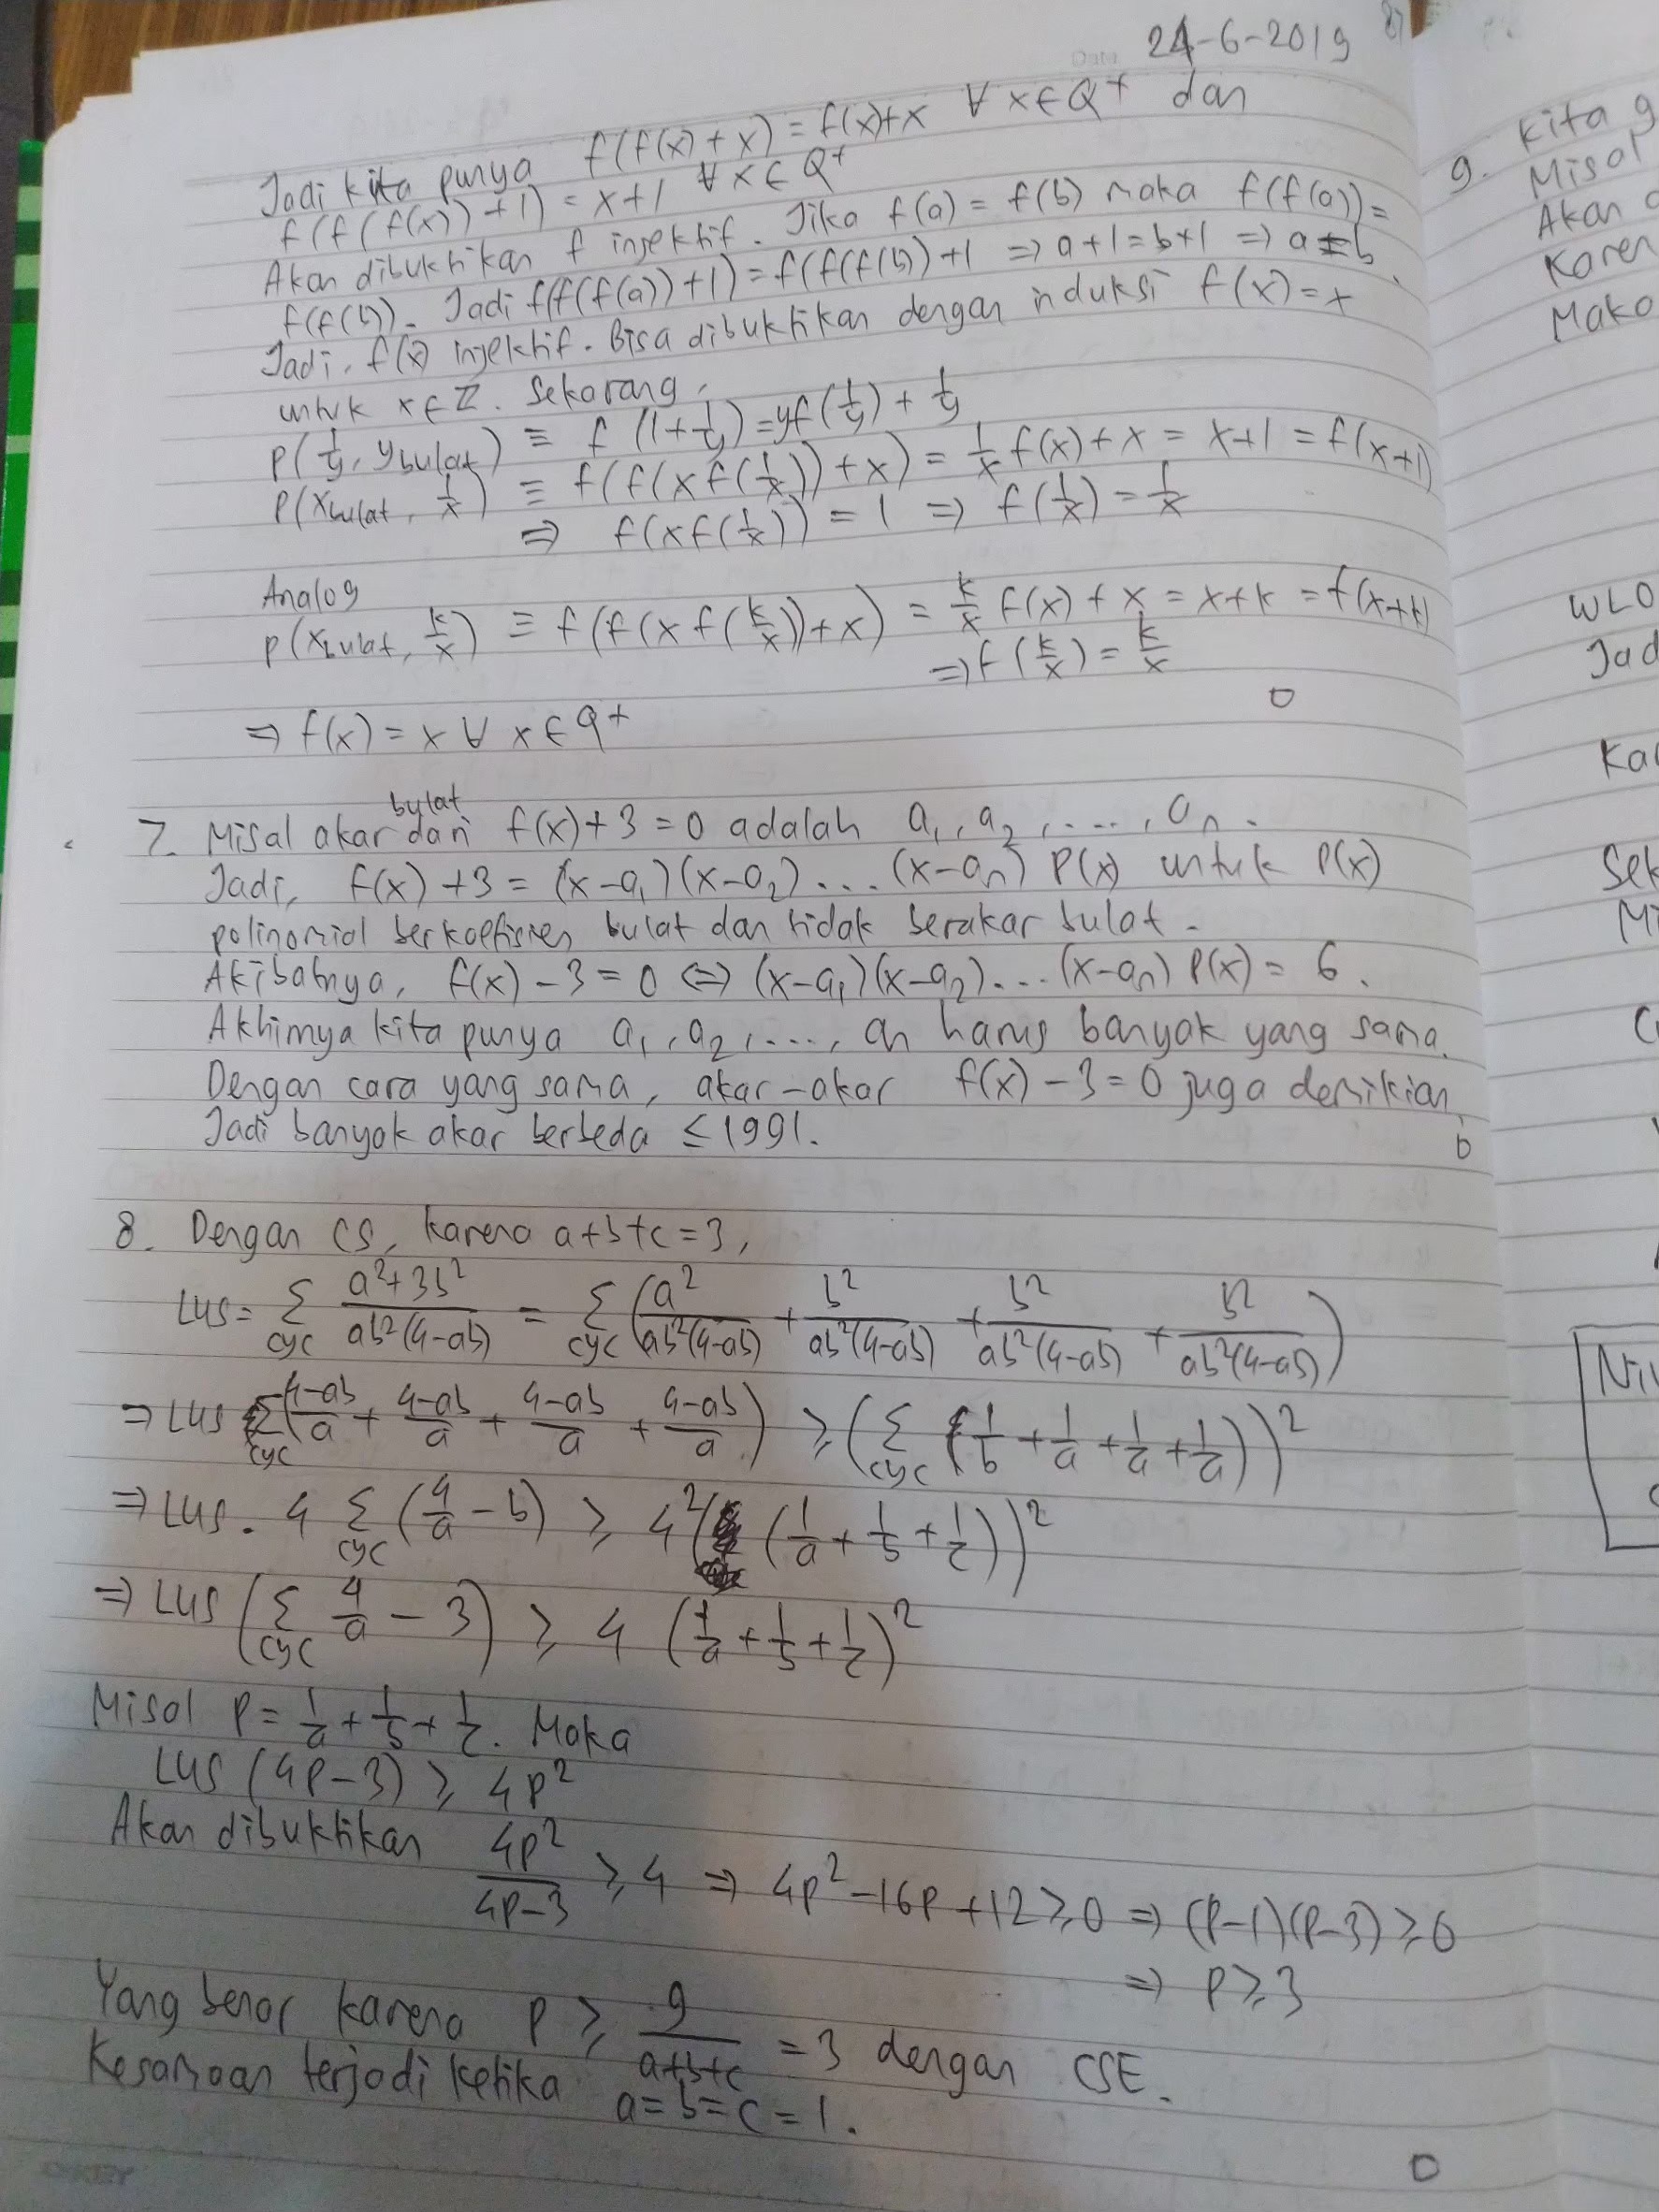 24-6-2019
Jadi kita punya f(f(x)+x) = f(x)+x ∀ x∈Q⁺ dan
f(f(f(x))+1) = x+1 ∀ x∈Q⁺
Akan dibuktikan f injektif. Jika f(a) = f(b) maka f(f(a)) =
f(f(b)). Jadi f(f(f(a))+1) = f(f(f(b))+1 ⇒ a+1=b+1 ⇒ a=b.
Jadi, f(x) injektif. Bisa dibuktikan dengan induksi f(x)=x
untuk x∈Z. Sekarang,
P(1/y, y bulat) ≡ f(1+1/y) = yf(1/y) + 1/y
P(x bulat, 1/x) ≡ f(f(xf(1/x))+x) = 1/x f(x)+x = x+1 = f(x+1)
⇒ f(xf(1/x)) = 1 ⇒ f(1/x) = 1/x
Analog
P(x bulat, k/x) ≡ f(f(xf(k/x))+x) = k/x f(x)+x = x+k = f(x+k)
⇒ f(k/x) = k/x
⇒ f(x) = x ∀ x∈Q⁺
7. Misal akar bulat dari f(x)+3=0 adalah a₁, a₂, ...., aₙ.
Jadi, f(x)+3 = (x-a₁)(x-a₂)...(x-aₙ) P(x) untuk P(x)
polinomial berkoefisien bulat dan tidak berakar bulat.
Akibatnya, f(x)-3=0 ⇔ (x-a₁)(x-a₂)...(x-aₙ) P(x) = 6.
Akhirnya kita punya a₁, a₂, ...., aₙ harus banyak yang sama.
Dengan cara yang sama, akar-akar f(x)-3=0 juga demikian
Jadi banyak akar berbeda ≤ 1991.
8. Dengan CS, karena a+b+c=3,
LHS = Σcyc (a²+3b²)/(ab²(4-ab)) = Σcyc (a²/(ab²(4-ab)) + b²/(ab²(4-ab)) + b²/(ab²(4-ab)) + b²/(ab²(4-ab)))
⇒ LHS Σcyc ((4-ab)/a + (4-ab)/a + (4-ab)/a + (4-ab)/a) ≥ (Σcyc (1/b + 1/a + 1/a + 1/a))²
⇒ LHS . 4 Σcyc (4/a - b) ≥ 4²((1/a + 1/b + 1/c))²
⇒ LHS (Σcyc 4/a - 3) ≥ 4 (1/a + 1/b + 1/c)²
Misal P = 1/a + 1/b + 1/c. Maka
LHS (4P-3) ≥ 4P²
Akan dibuktikan 4P²/(4P-3) ≥ 4 ⇒ 4P²-16P+12≥0 ⇒ (P-1)(P-3)≥0
⇒ P≥3
Yang benar karena P ≥ 9/(a+b+c) = 3 dengan CSE.
Kesamaan terjadi ketika a=b=c=1.
9. Kita
Misal
Akan
WLO
Jad